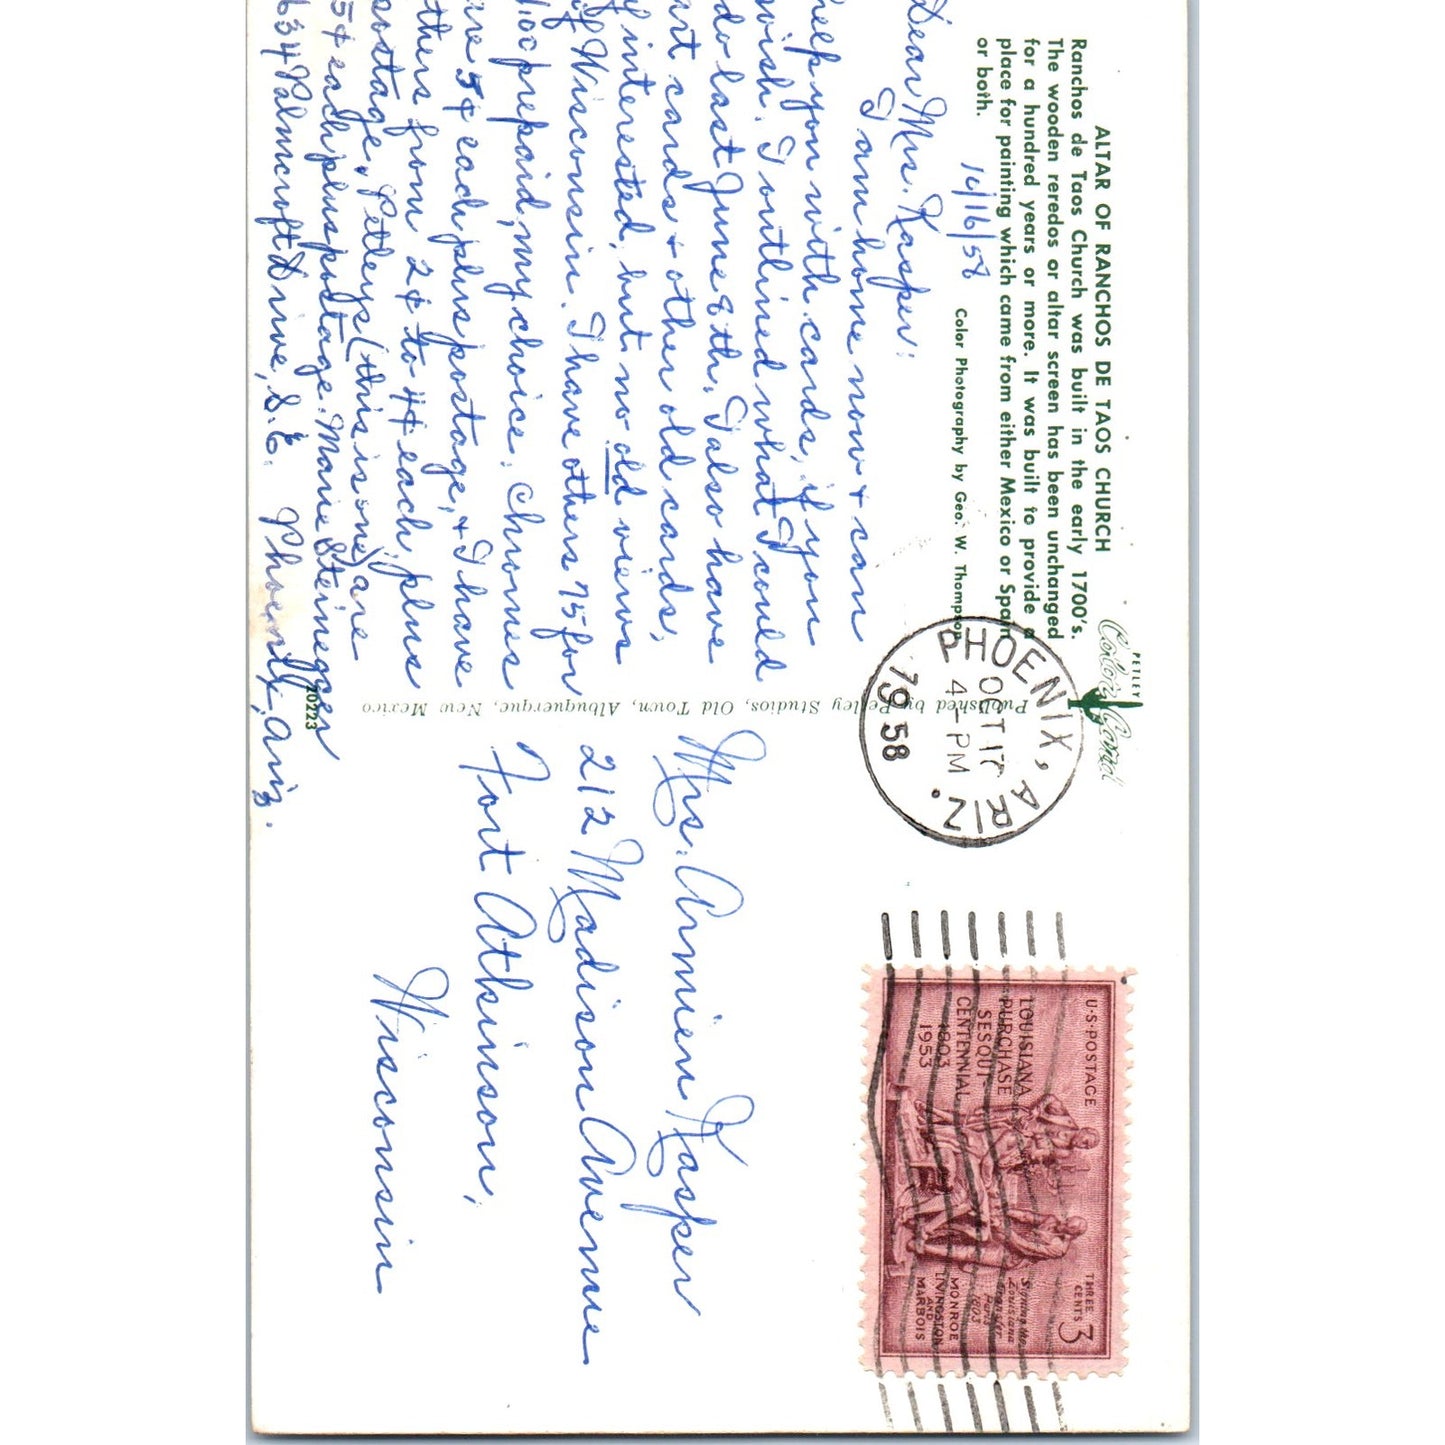 ALTAR OF RANCHOS DE TAOS CHURCH
Ranchos de Taos Church was built in the early 1700's.
The wooden reredos or altar screen has been unchanged
for a hundred years or more. It was built to provide a
place for painting which came from either Mexico or Spain
or both.
Color Photography by Geo. W. Thompson
10/16/58
Dear Mrs. Kasper:
I am home now & can
help you with cards, if you
wish. I outlined what I could
do last June 8th. I also have
art cards & other old cards,
if interested, but no old views
of Wisconsin. I have others 75 for
1.00 prepaid, my choice. Chromes
are 5¢ each plus postage, & I have
others from 2¢ to 4¢ each, plus
postage, Petleys (this is one) are
5¢ each plus postage. Marie Steinegger
634 Palmcroft Drive, S.E. Phoenix, Ariz.
10223
Published by Petley Studios, Old Town, Albuquerque, New Mexico
PETLEY
Color Card
PHOENIX, ARIZ.
OCT 17
4 - PM
1958
U.S. POSTAGE
LOUISIANA
PURCHASE
SESQUI
CENTENNIAL
1803
1953
THREE
CENTS
3
Signing the
Louisiana
Transfer
Paris
1803
MONROE
LIVINGSTON
AND
MARBOIS
Mrs. Armien Kasper
212 Madison Avenue
Fort Atkinson,
Wisconsin